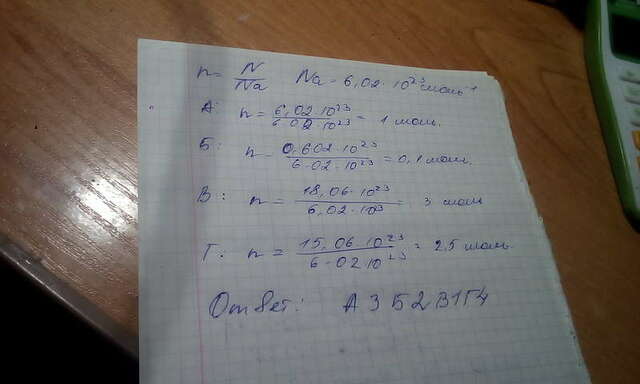 n = N/Na Na - 6,02 · 10²³ моль⁻¹
А: n = 6,02·10²³/6 02·10²³ = 1 моль.
Б: n - 0,602·10²³/6·02·10²³ = 0,1 моль.
В: n = 18,06·10²³/6,02·10²³ = 3 моль
Г: n = 15,06·10²³/6·02 10²³ = 2,5 моль.
Ответ: А3 Б2 В1 Г4